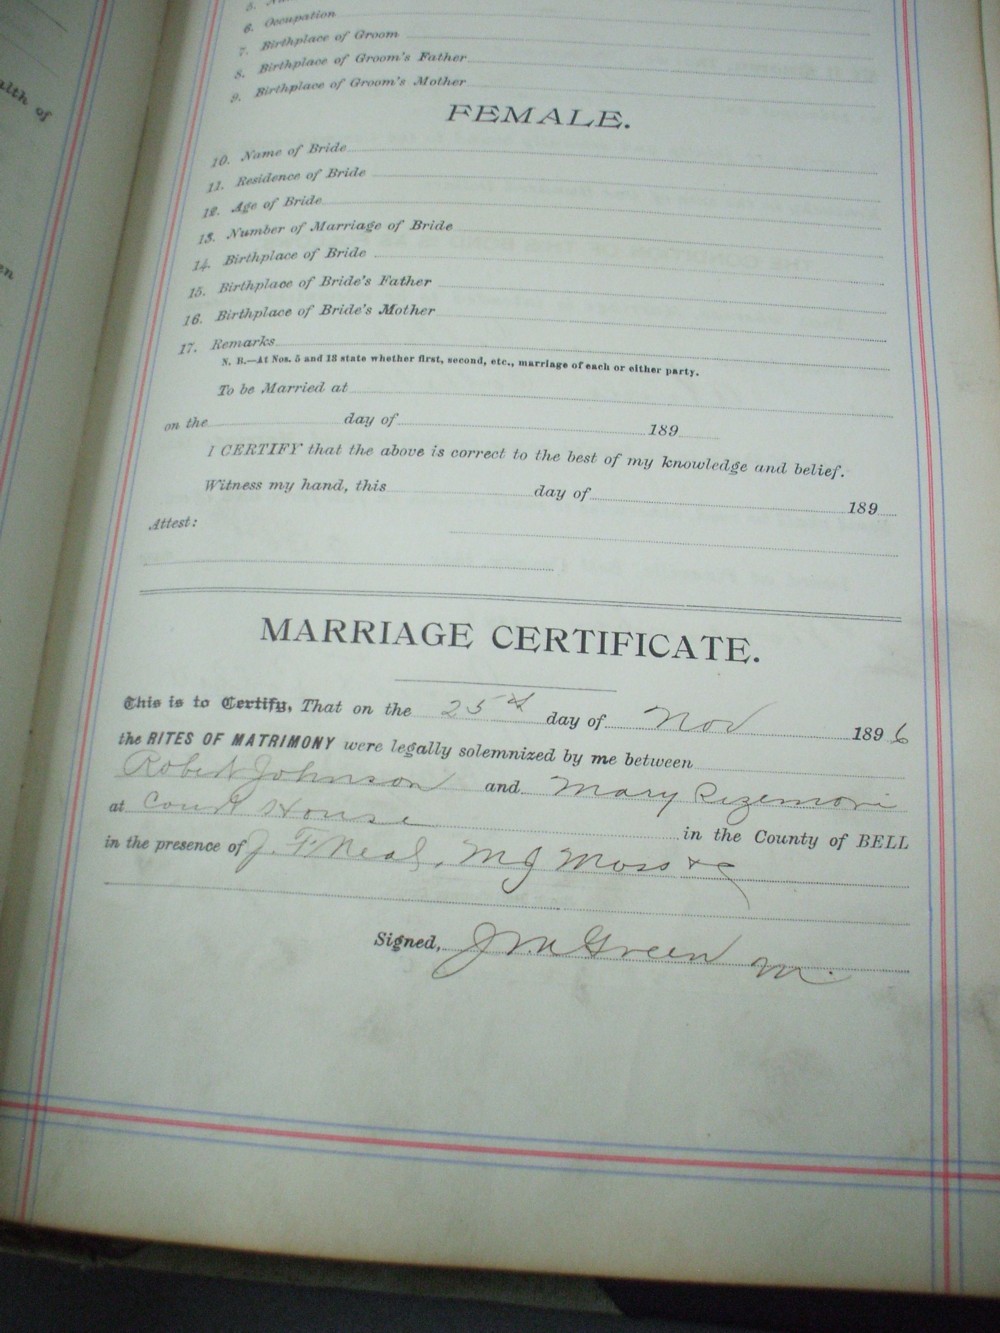 alth of
en
6. Occupation
7. Birthplace of Groom
8. Birthplace of Groom's Father
9. Birthplace of Groom's Mother
FEMALE.
10. Name of Bride
11. Residence of Bride
12. Age of Bride
13. Number of Marriage of Bride
14. Birthplace of Bride
15. Birthplace of Bride's Father
16. Birthplace of Bride's Mother
17. Remarks
N. B.—At Nos. 5 and 13 state whether first, second, etc., marriage of each or either party.
To be Married at
on the day of 189
I CERTIFY that the above is correct to the best of my knowledge and belief.
Witness my hand, this day of 189
Attest:
MARRIAGE CERTIFICATE.
This is to Certify, That on the 25 day of Nov 1896
the RITES OF MATRIMONY were legally solemnized by me between
Robert Johnson and Mary
at Court House in the County of BELL
in the presence of J. F. Neal, M J Moss &c
Signed, J M Green M.